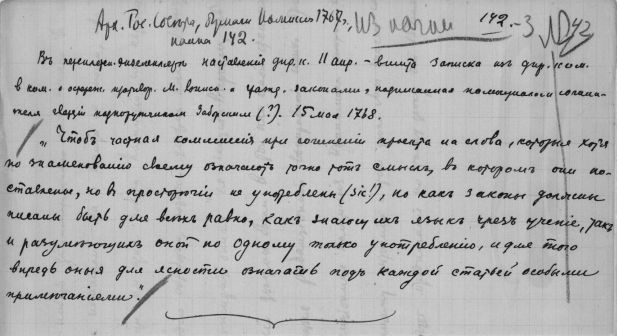 Арх. Гос. Совѣта, бумаги Комиссіи 1767 г., из пачки 142.–3 №42
пачка 142.
Въ переплетъ наставленія дир. к. 11 апр. – вшита записка изъ дир. ком.
в ком. о М. Воинск. и гражд. законами, подписанная
15 мая 1768.
„Чтобъ частная коммиссія при сочиненіи проекта на слова, которыя хотя
по знаменованію своему означаютъ точно тотъ смыслъ, въ которомъ они по-
ставлены, но въ просторѣчіи не употреблены (sic!), но какъ законы должны
писаны быть для всѣхъ равно, какъ знающихъ языкъ чрезъ ученіе, такъ
и разумѣющихъ оной по одному только употребленію, и для того
впредь оныя для ясности означать подъ каждой статьей особыми
примѣчаніями".